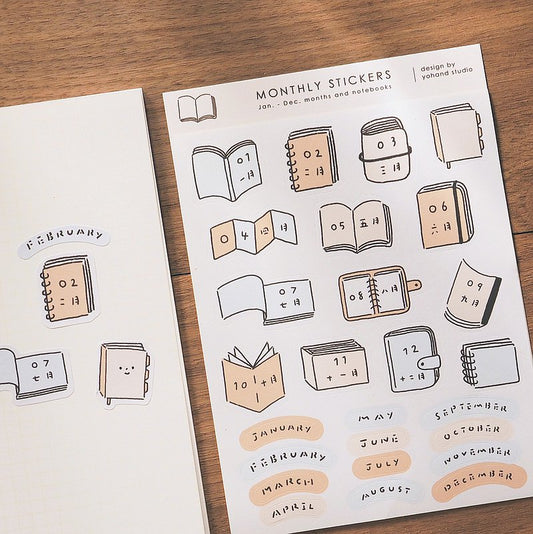 MONTHLY STICKERS
Jan. - Dec. months and notebooks
design by
yohand studio
01
一月
02
二月
03
三月
04 四月
05 五月
06
六月
07
七月
08 八月
09
九月
10 十月
11
十一月
12
十二月
JANUARY
FEBRUARY
MARCH
APRIL
MAY
JUNE
JULY
AUGUST
SEPTEMBER
OCTOBER
NOVEMBER
DECEMBER
FEBRUARY
02
二月
07
七月